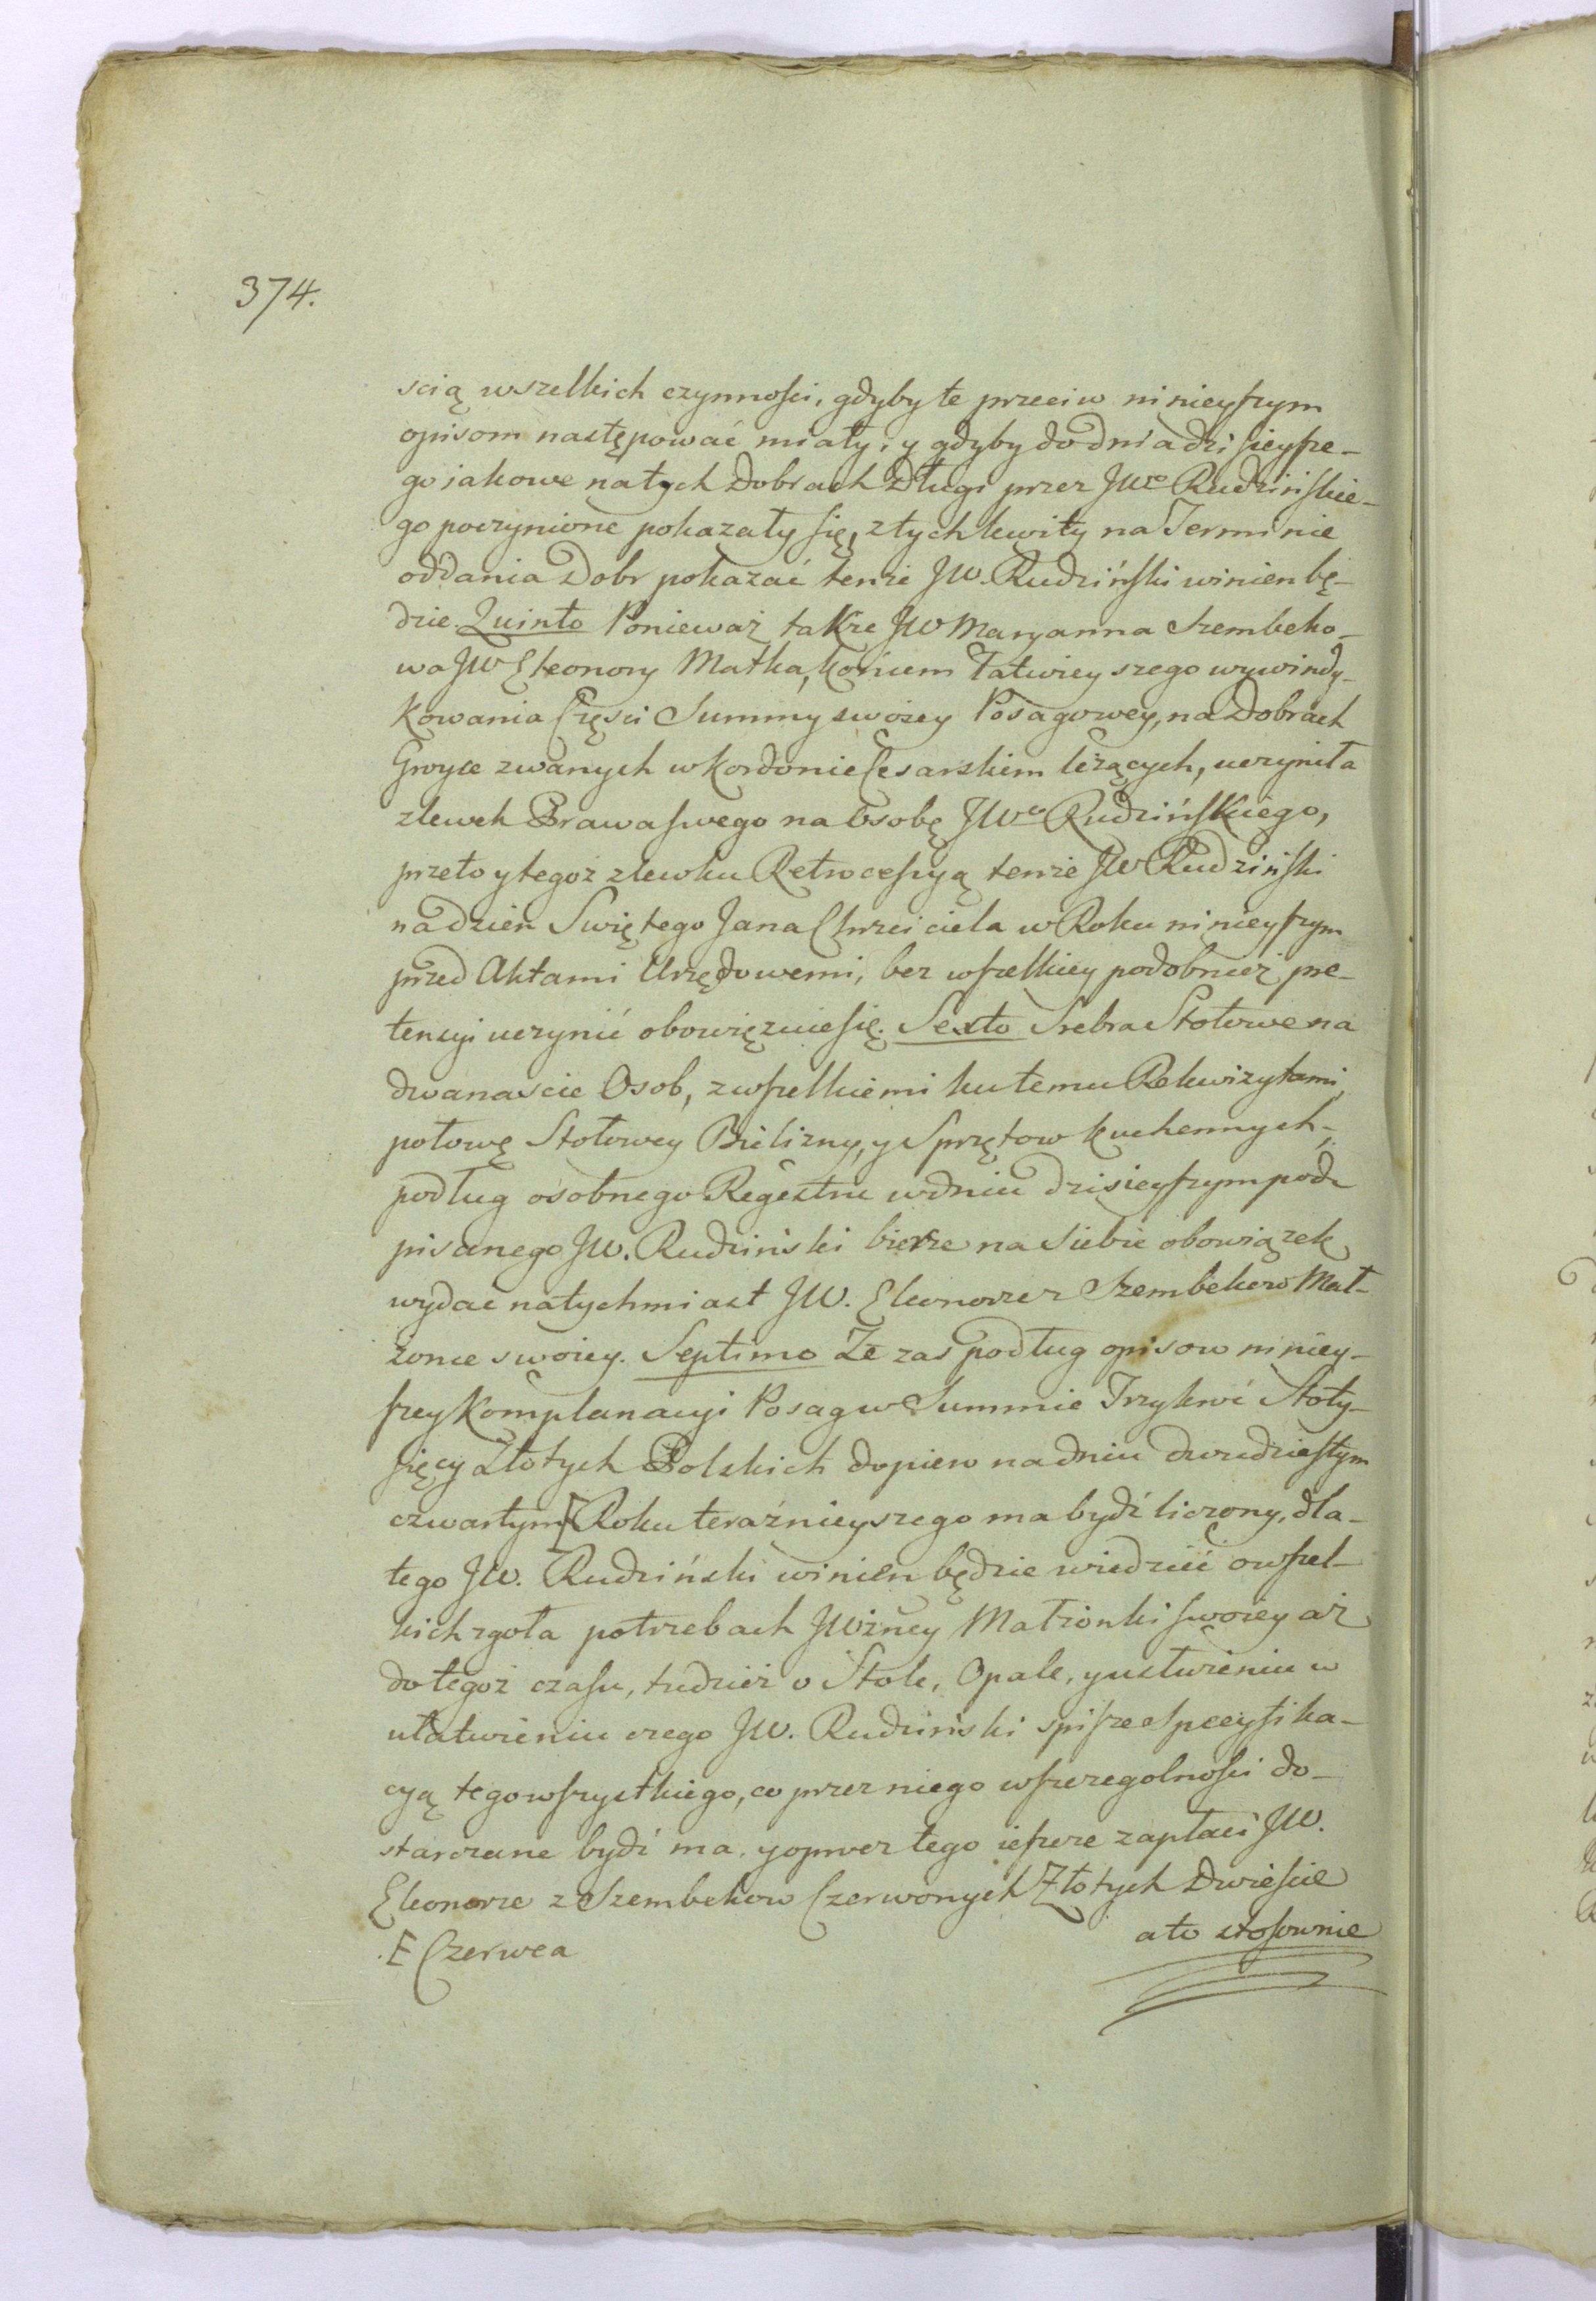 374.
scią wszelkich czynności, gdyby te przeciw ninieyszym
opisom następować miały, y gdyby do dnia dzisieysze-
go iakowe na tych Dobrach Długi przez JWo Rudzińskie-
go poczynione pokazały się, z tych kwity na Terminie
oddania Dobr pokazać tenże JW. Rudziński winien bę-
dzie. Quinto Ponieważ także JW Maryanna Szembeko-
wa JW Eleonory Matka, końcem łatwieyszego wywindy-
kowania Części Summy swoiey Posagowey, na Dobrach
zwanych w kordonie Cesarskim leżących, uczyniła
zlewek Prawa swego na Osobę JWo Rudzińskiego,
przeto y tegoż zlewku Retrocessyą tenże JW Rudziński
na dzień Swiętego Jana Chrzciciela w Roku ninieyszym
przed Aktami Urzędowemi, bez wszelkiey podobnież pre-
tensyi uczynić obowięzuie się. Sexto Srebra Stołowe na
dwanaście Osob, z wszelkiemi ku temu Rekwizytami,
połowę Stołowey Bielizny, y Sprzętow kuchennych,
podług osobnego Regestru w dniu dzisieyszym pod-
pisanego JW. Rudziński bierze na siebie obowiązek
wydać natychmiast JW. Eleonorze z Szembekow Mał-
żonce swoiey. Septimo Że zaś podług opisow niniey-
szey Komplanacyi Posag w Summie Trzykroć Stoty-
sięcy Złotych Polskich dopiero na dniu dwudziestym
czwartym Roku teraźnieyszego ma bydź liczony, dla-
tego JW. Rudziński winien będzie wiedzieć o wszel-
kich zgoła potrzebach JWżney Małżonki swoiey aż
do tegoż czasu, tudzież o Stole, Opale, y
ułatwieniu czego JW. Rudziński spisze Specyfika-
cyą tego wszystkiego, co przez niego w szczegolności do-
starczane bydź ma, y oprocz tego ieszcze zapłaci JW.
Eleonorze z Szembekow Czerwonych Złotych Dwieście
a to stosownie
F Czerwca